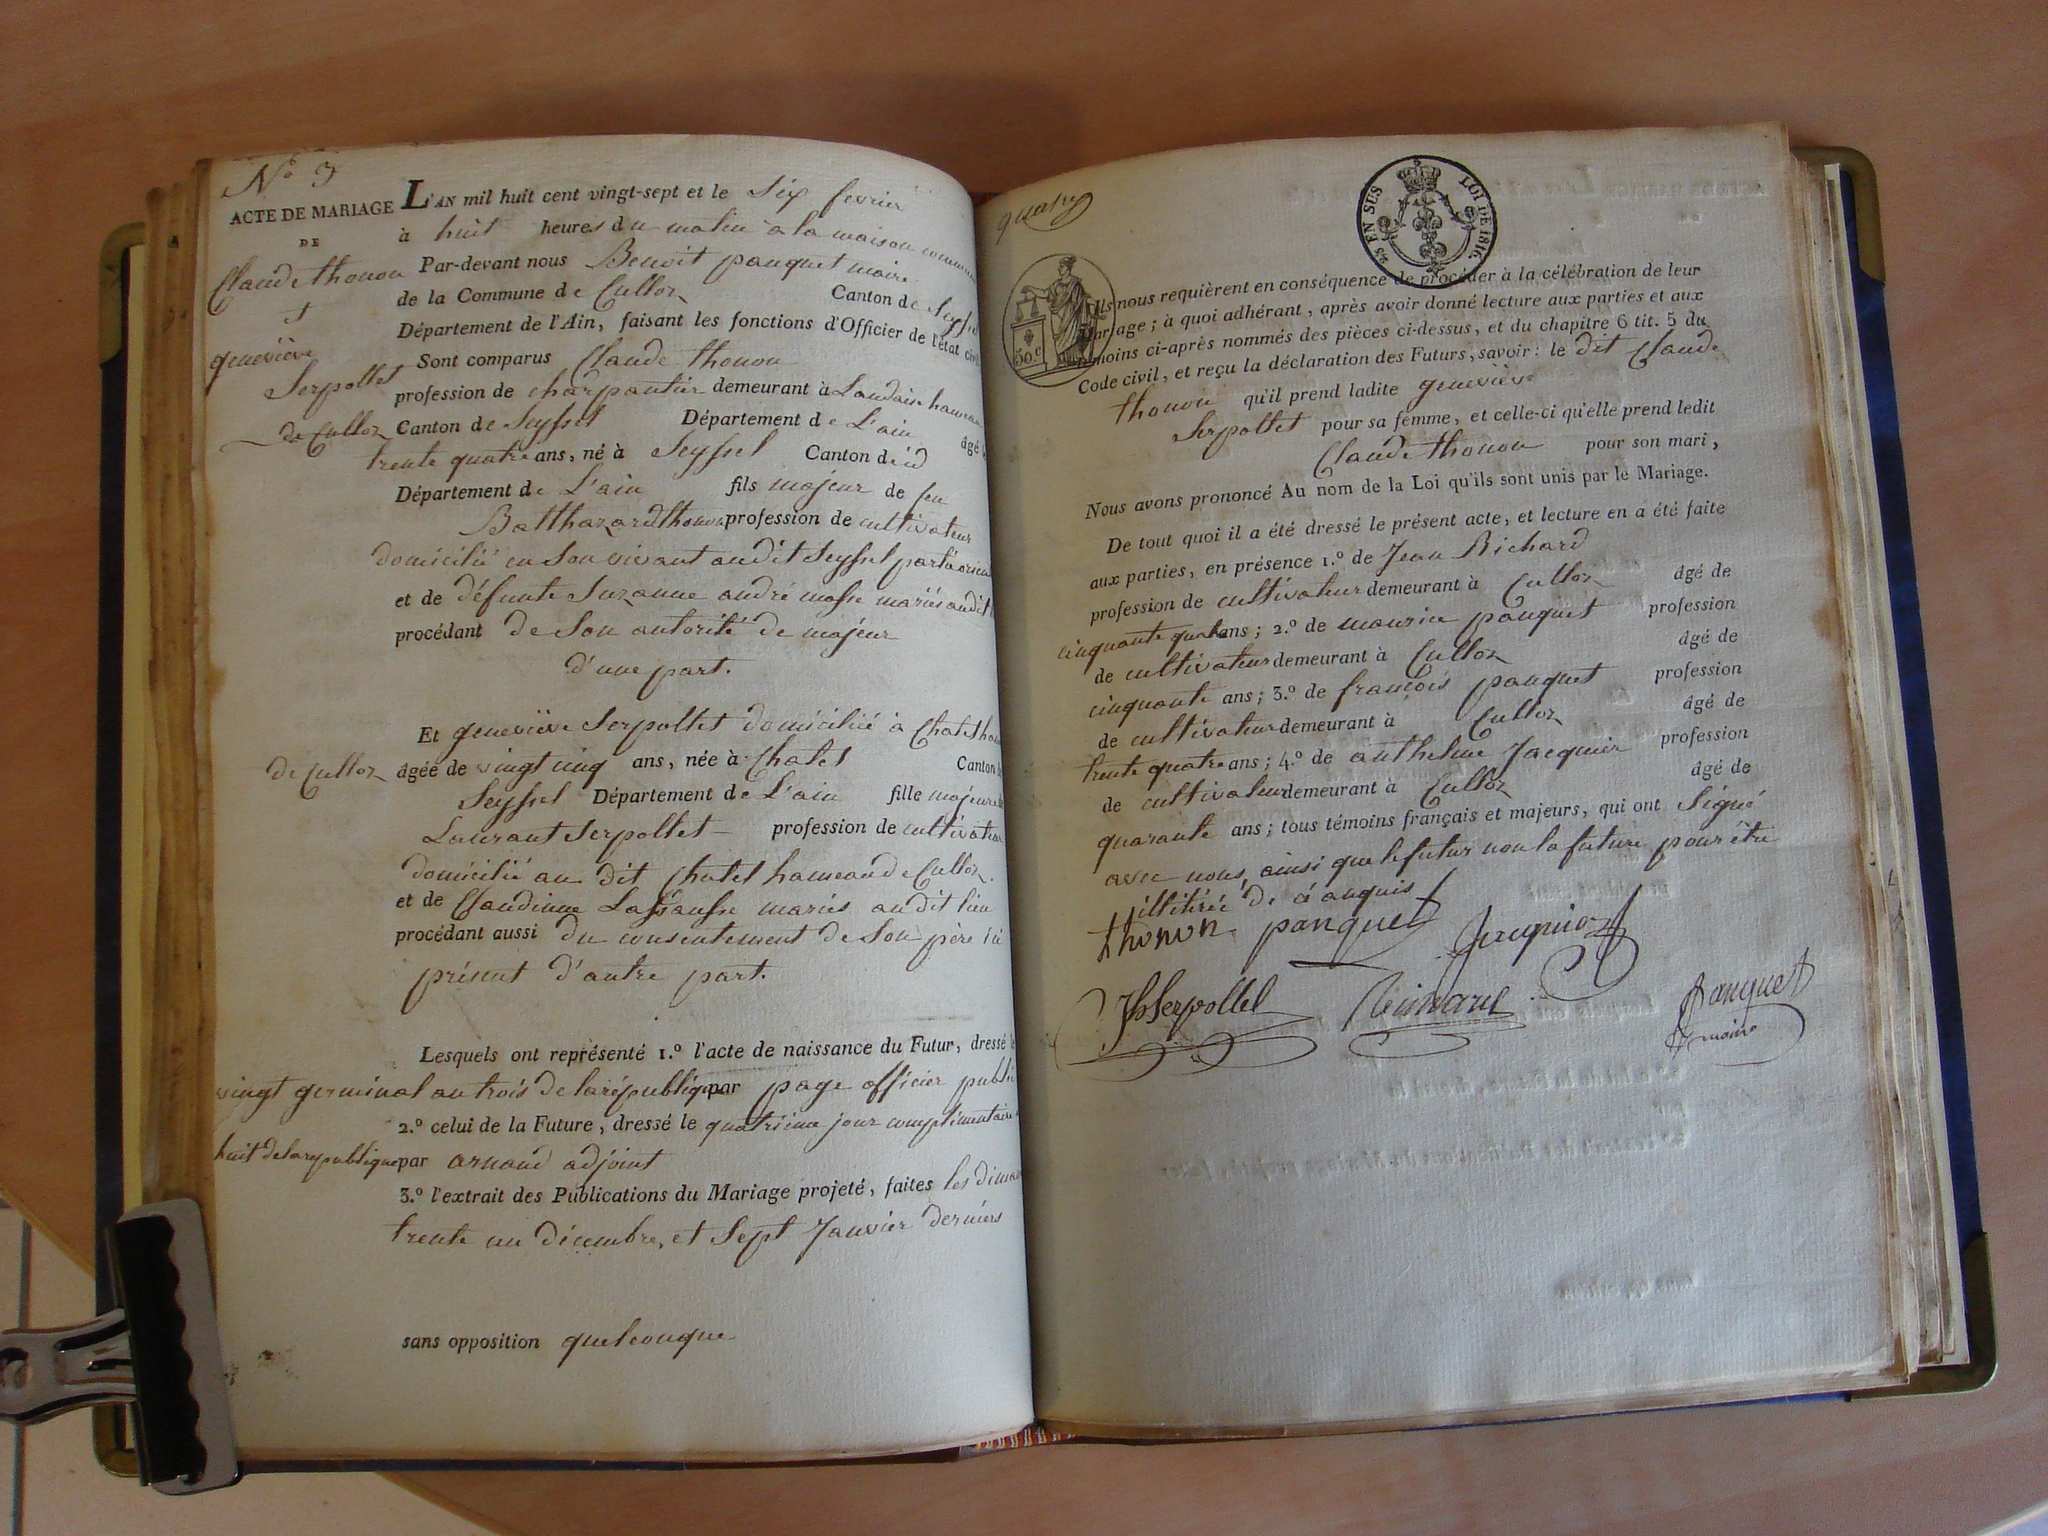 N.º 3
ACTE DE MARIAGE
DE
Claude thonon
et
geneviève
Serpollet
de Culloz
L'AN mil huit cent vingt-sept et le Six fevrier
à huit heures du matin à la maison commune
Par-devant nous Benoit panquet maire
de la Commune de Culloz Canton de Seyssel
Département de l'Ain, faisant les fonctions d'Officier de l'état civil
Sont comparus Claude thonon
profession de charpantier demeurant à Landaise hameau
Canton de Seyssel Département de L'ain âgé de
trente quatre ans, né à Seyssel Canton de id
Département de L'ain fils majeur de feu
Balthazard thonon profession de cultivateur
domicilié en Son vivant au dit Seyssel partie
et de défunte Suzanne andré masse mariés audit
procédant de Son autorité de majeur
d'une part.
Et geneviève Serpollet domicilié à Chatel hameau
de Culloz âgée de vingt cinq ans, née à Chatel Canton de
Seyssel Département de L'ain fille majeure de
Laurant Serpollet profession de cultivateur
domicilié au dit chatel hameau de Culloz.
et de Claudinne Lassausse mariés au dit lieu
procédant aussi du consentement de Son père ici
présent d'autre part.
Lesquels ont représenté 1.º l'acte de naissance du Futur, dressé le
vingt germinal an trois de la république par page officier public
2.º celui de la Future, dressé le quatrième jour complimentaire
huit de la republique par arnaud adjoint
3.º l'extrait des Publications du Mariage projeté, faites les diman
trente un décembre, et Sept Janvier derniers
sans opposition quelconque
quatre
50.c
25 EN SUS LOI DE 1816.
Ils nous requièrent en conséquence de procéder à la célébration de leur
Mariage; à quoi adhérant, après avoir donné lecture aux parties et aux
témoins ci-après nommés des pièces ci-dessus, et du chapitre 6 tit. 5 du
Code civil, et reçu la déclaration des Futurs, savoir: le dit Claude
thonon qu'il prend ladite geneviève
Serpollet pour sa femme, et celle-ci qu'elle prend ledit
Claude thonon pour son mari,
Nous avons prononcé Au nom de la Loi qu'ils sont unis par le Mariage.
De tout quoi il a été dressé le présent acte, et lecture en a été faite
aux parties, en présence 1.º de Jean Richard
profession de cultivateur demeurant à Culloz âgé de
cinquante quatre ans; 2.º de maurice panquet profession
de cultivateur demeurant à Culloz âgé de
cinquante ans; 3.º de françois panquet profession
de cultivateur demeurant à Culloz âgé de
trente quatre ans; 4.º de anthelme Jacquier profession
de cultivateur demeurant à Culloz âgé de
quarante ans; tous témoins français et majeurs, qui ont Signé
avec nous, ainsi que le futur non la future pour être
illitirée de ci anquis
thonon panquet Jacquier
Serpollet panquet
maire